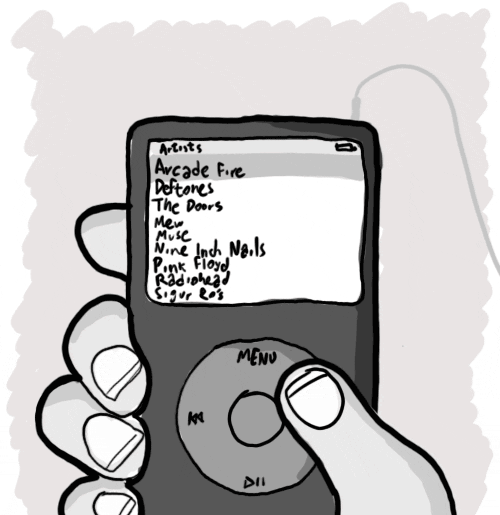 Artists
Arcade Fire
Deftones
The Doors
Mew
Muse
Nine Inch Nails
Pink Floyd
Radiohead
Sigur Ros
MENU